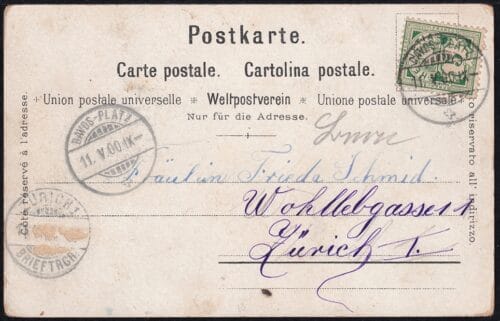 Postkarte.
Carte postale. Cartolina postale.
Union postale universelle * Weltpostverein * Unione postale universale
Nur für die Adresse.
Côté réservé à l'adresse.
Lato riservato all' indirizzo.
DAVOS-PLATZ
11. V. 00. IX-
DAVOS-PLATZ
Fräulein Frieda Schmid.
Wohllebgasse 11
Zürich I.
ZÜRICH 1
BRIEFTRGR.